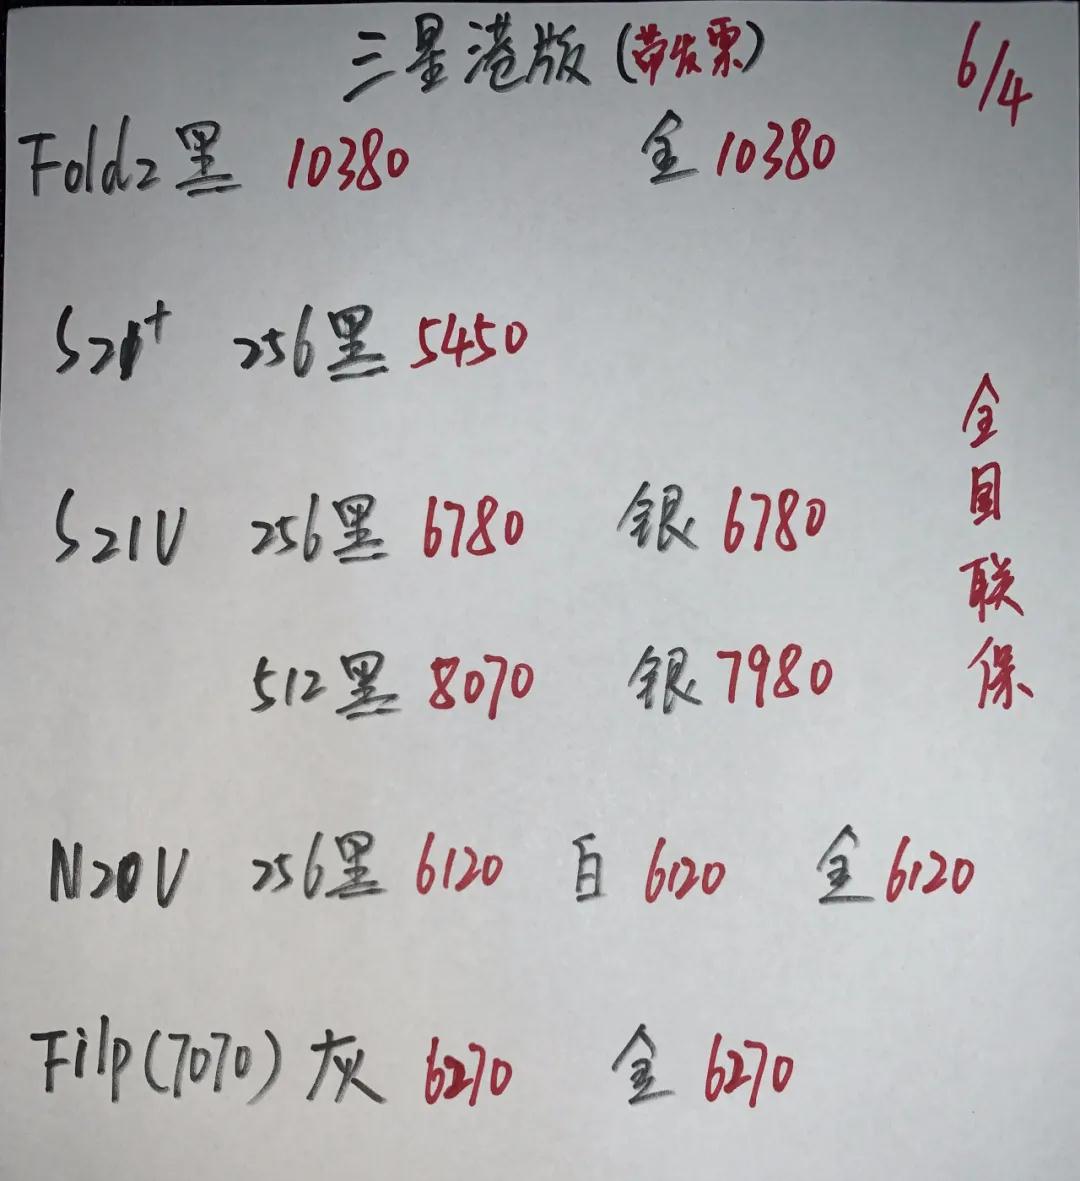 三星港版(带发票) 6/4
Fold2黑 10380 金 10380
S21+ 256黑 5450
S21U 256黑 6780 银 6780
512黑 8070 银 7980
N20U 256黑 6120 白 6120 金 6120
Filp(7070) 灰 6270 金 6270
全国联保